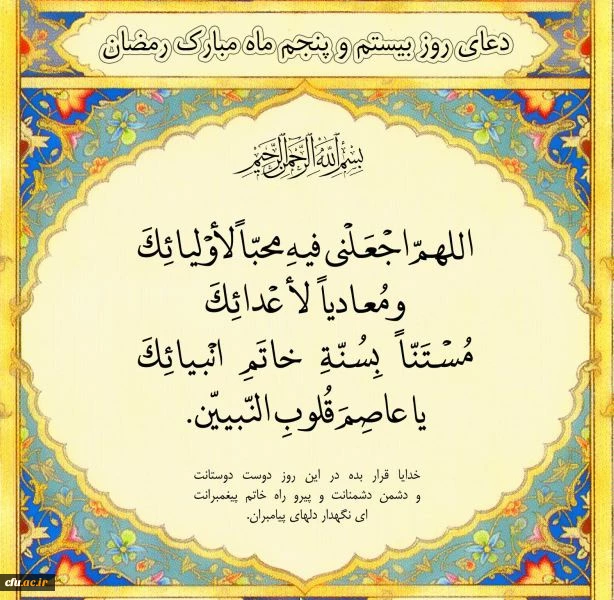 دعای روز بیستم و پنجم ماه مبارک رمضان
بسم الله الرحمن الرحیم
اللهمّ اجْعَلْنی فیهِ محبّاً لأوْلیائِكَ
ومُعادیاً لأعْدائِكَ
مُسْتَنّاً بِسُنّةِ خاتَمِ انْبیائِكَ
یا عاصِمَ قُلوبِ النّبییّن.
خدایا قرار بده در این روز دوست دوستانت
و دشمن دشمنانت و پیرو راه خاتم پیغمبرانت
ای نگهدار دلهای پیامبران.
cfu.ac.ir